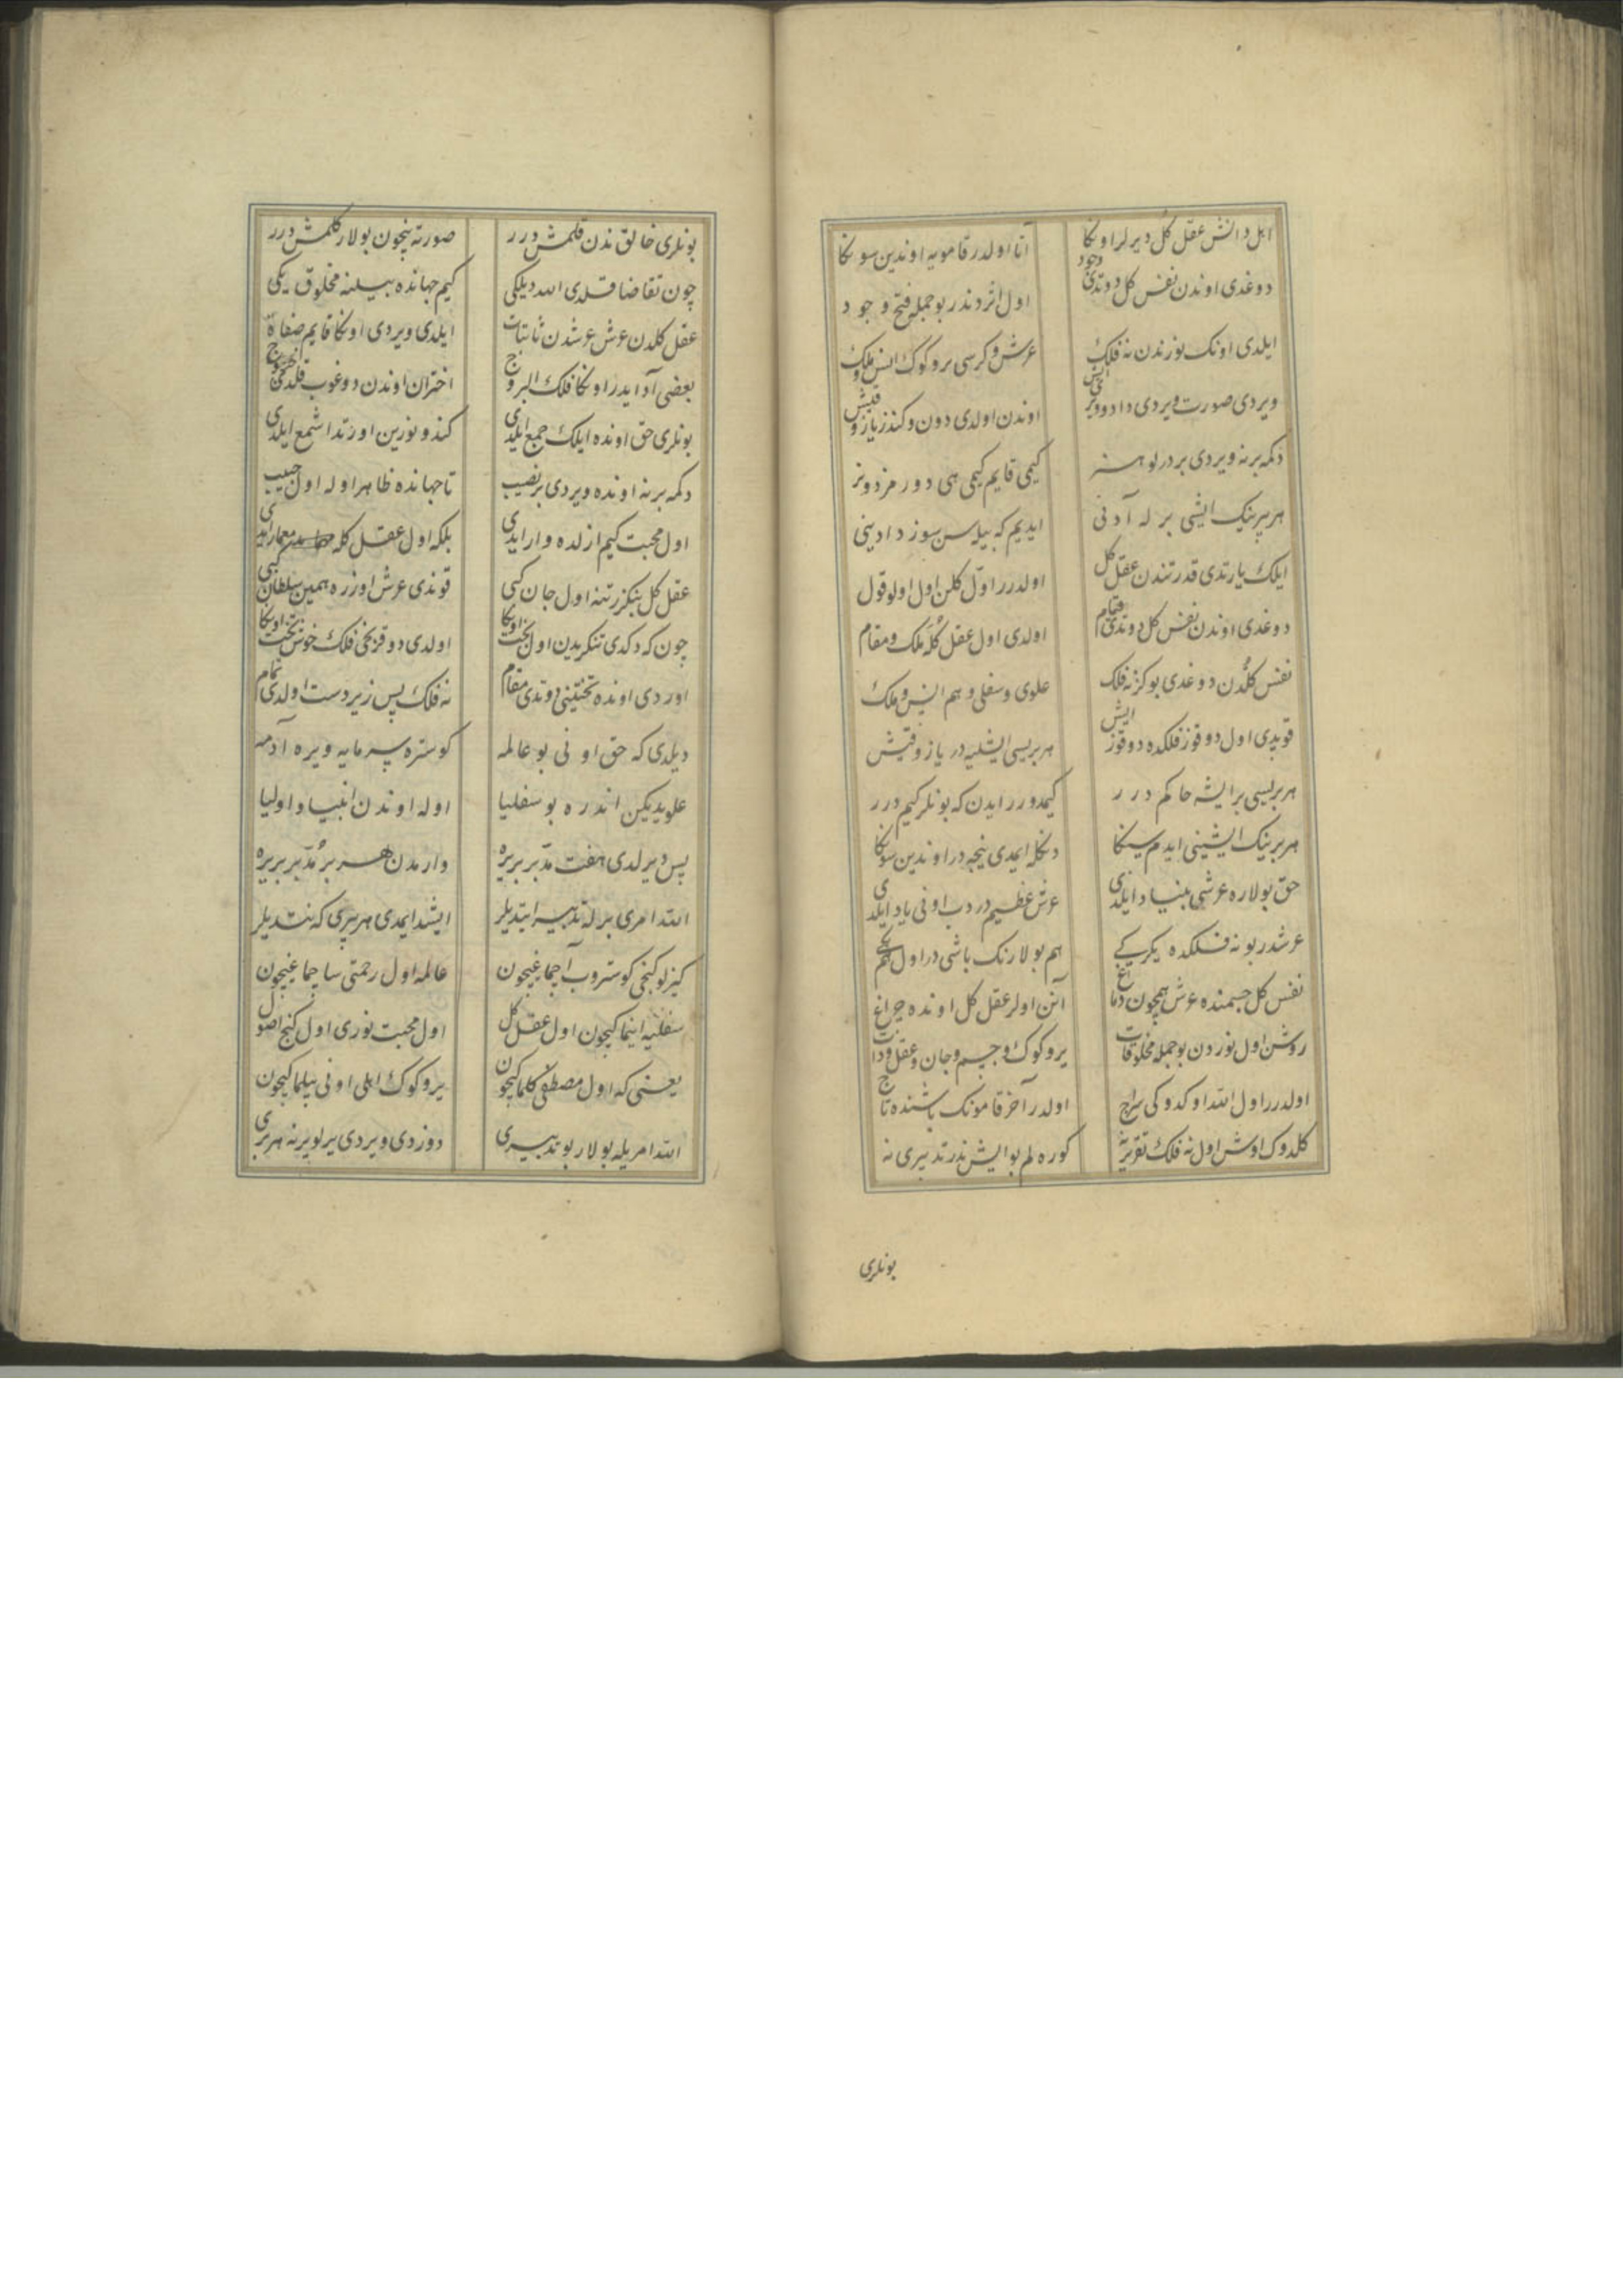 اهل دانش عقل کل دیرلر اوکا آتا اولدر قامویه اوندین سوکا
دوغدی اوندن نفس کل دوتدی وجود اول اثردندر بو جمله فتح و جود
ایلدی اونک نورندن نه فلک عرش و کرسی یر و کوک انس و ملک
ویردی صورت ویردی داد و اوندن اولدی دون و کندز یاز و قیش
دکمه برنه ویردی بر درلو هنر کیمی قایم کیمی هی دورر مز دونر
هر برینک ایشی برله آدنی ایدیم که بیله سن سوز دادینی
ایلک یارتدی قدرتندن عقل کل اولدرر اول کلن اول اولو قول
دوغدی اوندن نفس کل دوتدی قیام اولدی اول عقل کله ملک و مقام
نفس کلدن دوغدی بو کز نه فلک علوی و سفلی و هم انس و ملک
قویدی اول دوقوز فلکده دوقوز ایش هر بریسی ایشلیه در یاز و قیش
هر بریسی بر ایشه حاکم درر کیمدورر ایدن که بونلر کیم درر
هر برینک ایشینی ایدم سنکا دنکله ایمدی نیجه در اوندین سونکا
حق بولاره عرشی بنیاد ایلدی عرش عظیم در دب اونی یاد ایلدی
عرشدر بو نه فلکده یکرکی هم بولارنک باشی در اول
نفس کل جسمنده عرش همچون دماغ آنن اولر عقل کل اونده چراغ
روشن اول نوردن بو جمله مخلوقات یر و کوک و جسم و جان و عقل و ذات
اولدرر اول الله اوکدوکی سراج اولدر آخر قامونک باشنده تاج
کلدوک اوش اول نه فلک تقریرینه کوره لم بو ایش ندر تدبیری نه
بونلری
بونلری خالق ندن قلمش درر صورته نیچون بولار کلمش درر
چون تقاضا قلدی الله دیلکی کیم جهانده بیلنه مخلوق یکی
عقل کلدن عرش عرشدن ثابتات ایلدی ویردی اونکا قایم صفات
بعضی آد ایدر اونکا فلک البروج اختران اوندن دوغوب قلدی خروج
بونلری حق اونده ایلک جمع ایلدی کندو نورین اورتدا شمع ایلدی
دکمه برنه اونده ویردی بر نصیب تا جهانده ظاهر اوله اول حبیب
اول محبت کیم ازلده وار ایدی بلکه اول عقل کله معمار ایدی
عقل کل بنکزر تنه اول جان کبی قوندی عرش اوزره همین سلطان کبی
چون که دکدی تنکریدین اول بخت اونکا اولدی دوقزنجی فلک خوش تخت اونکا
اوردی اونده تختینی دوتدی مقام نه فلک پس زیردست اولدی تمام
دیلدی که حق اونی بو عالمه کوستره سرمایه ویره آدمه
علویدیکن اندره بو سفلیا اوله اوندن انبیا و اولیا
پس دیرلدی هفت مدبر بریره واردن هر بر مدبر بریره
الله امری برله تدبیر ایتدیلر ایشد ایمدی هر بری که نتدیلر
کیزلو کنجی کوستروب آچماغیچون عالمه اول رحمتی ساچماغیچون
سفلیه اینماکیچون اول عقل کل اول محبت نوری اول کنج اصول
یعنی که اول مصطفی کلماکیچون یر و کوک اهلی اونی بیلماکیچون
الله امریله بولار بو تدبیری دوزدی ویردی یرلو یرنه هر بری